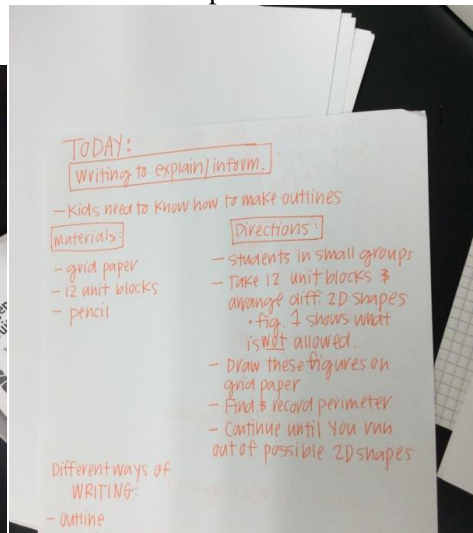 TODAY:
Writing to explain/inform.
- Kids need to know how to make outlines
materials:
- grid paper
- 12 unit blocks
- pencil
Directions:
- students in small groups
- Take 12 unit blocks &
arrange diff. 2D shapes
• fig. 1 shows what
is not allowed.
- Draw these figures on
grid paper
- Find & record perimeter
- Continue until you run
out of possible 2D shapes
Different ways of
WRITING:
- outline